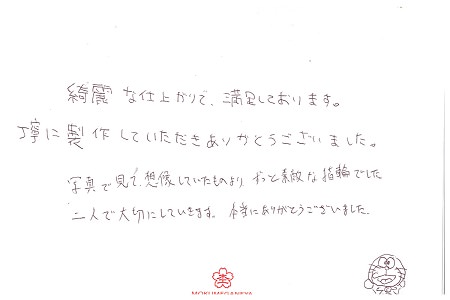 綺麗な仕上がりで、満足しております。
丁寧に製作していただきありがとうございました。
写真で見て、想像していたものより、ずっと素敵な指輪でした
二人で大切にしていきます。本当にありがとうございました。